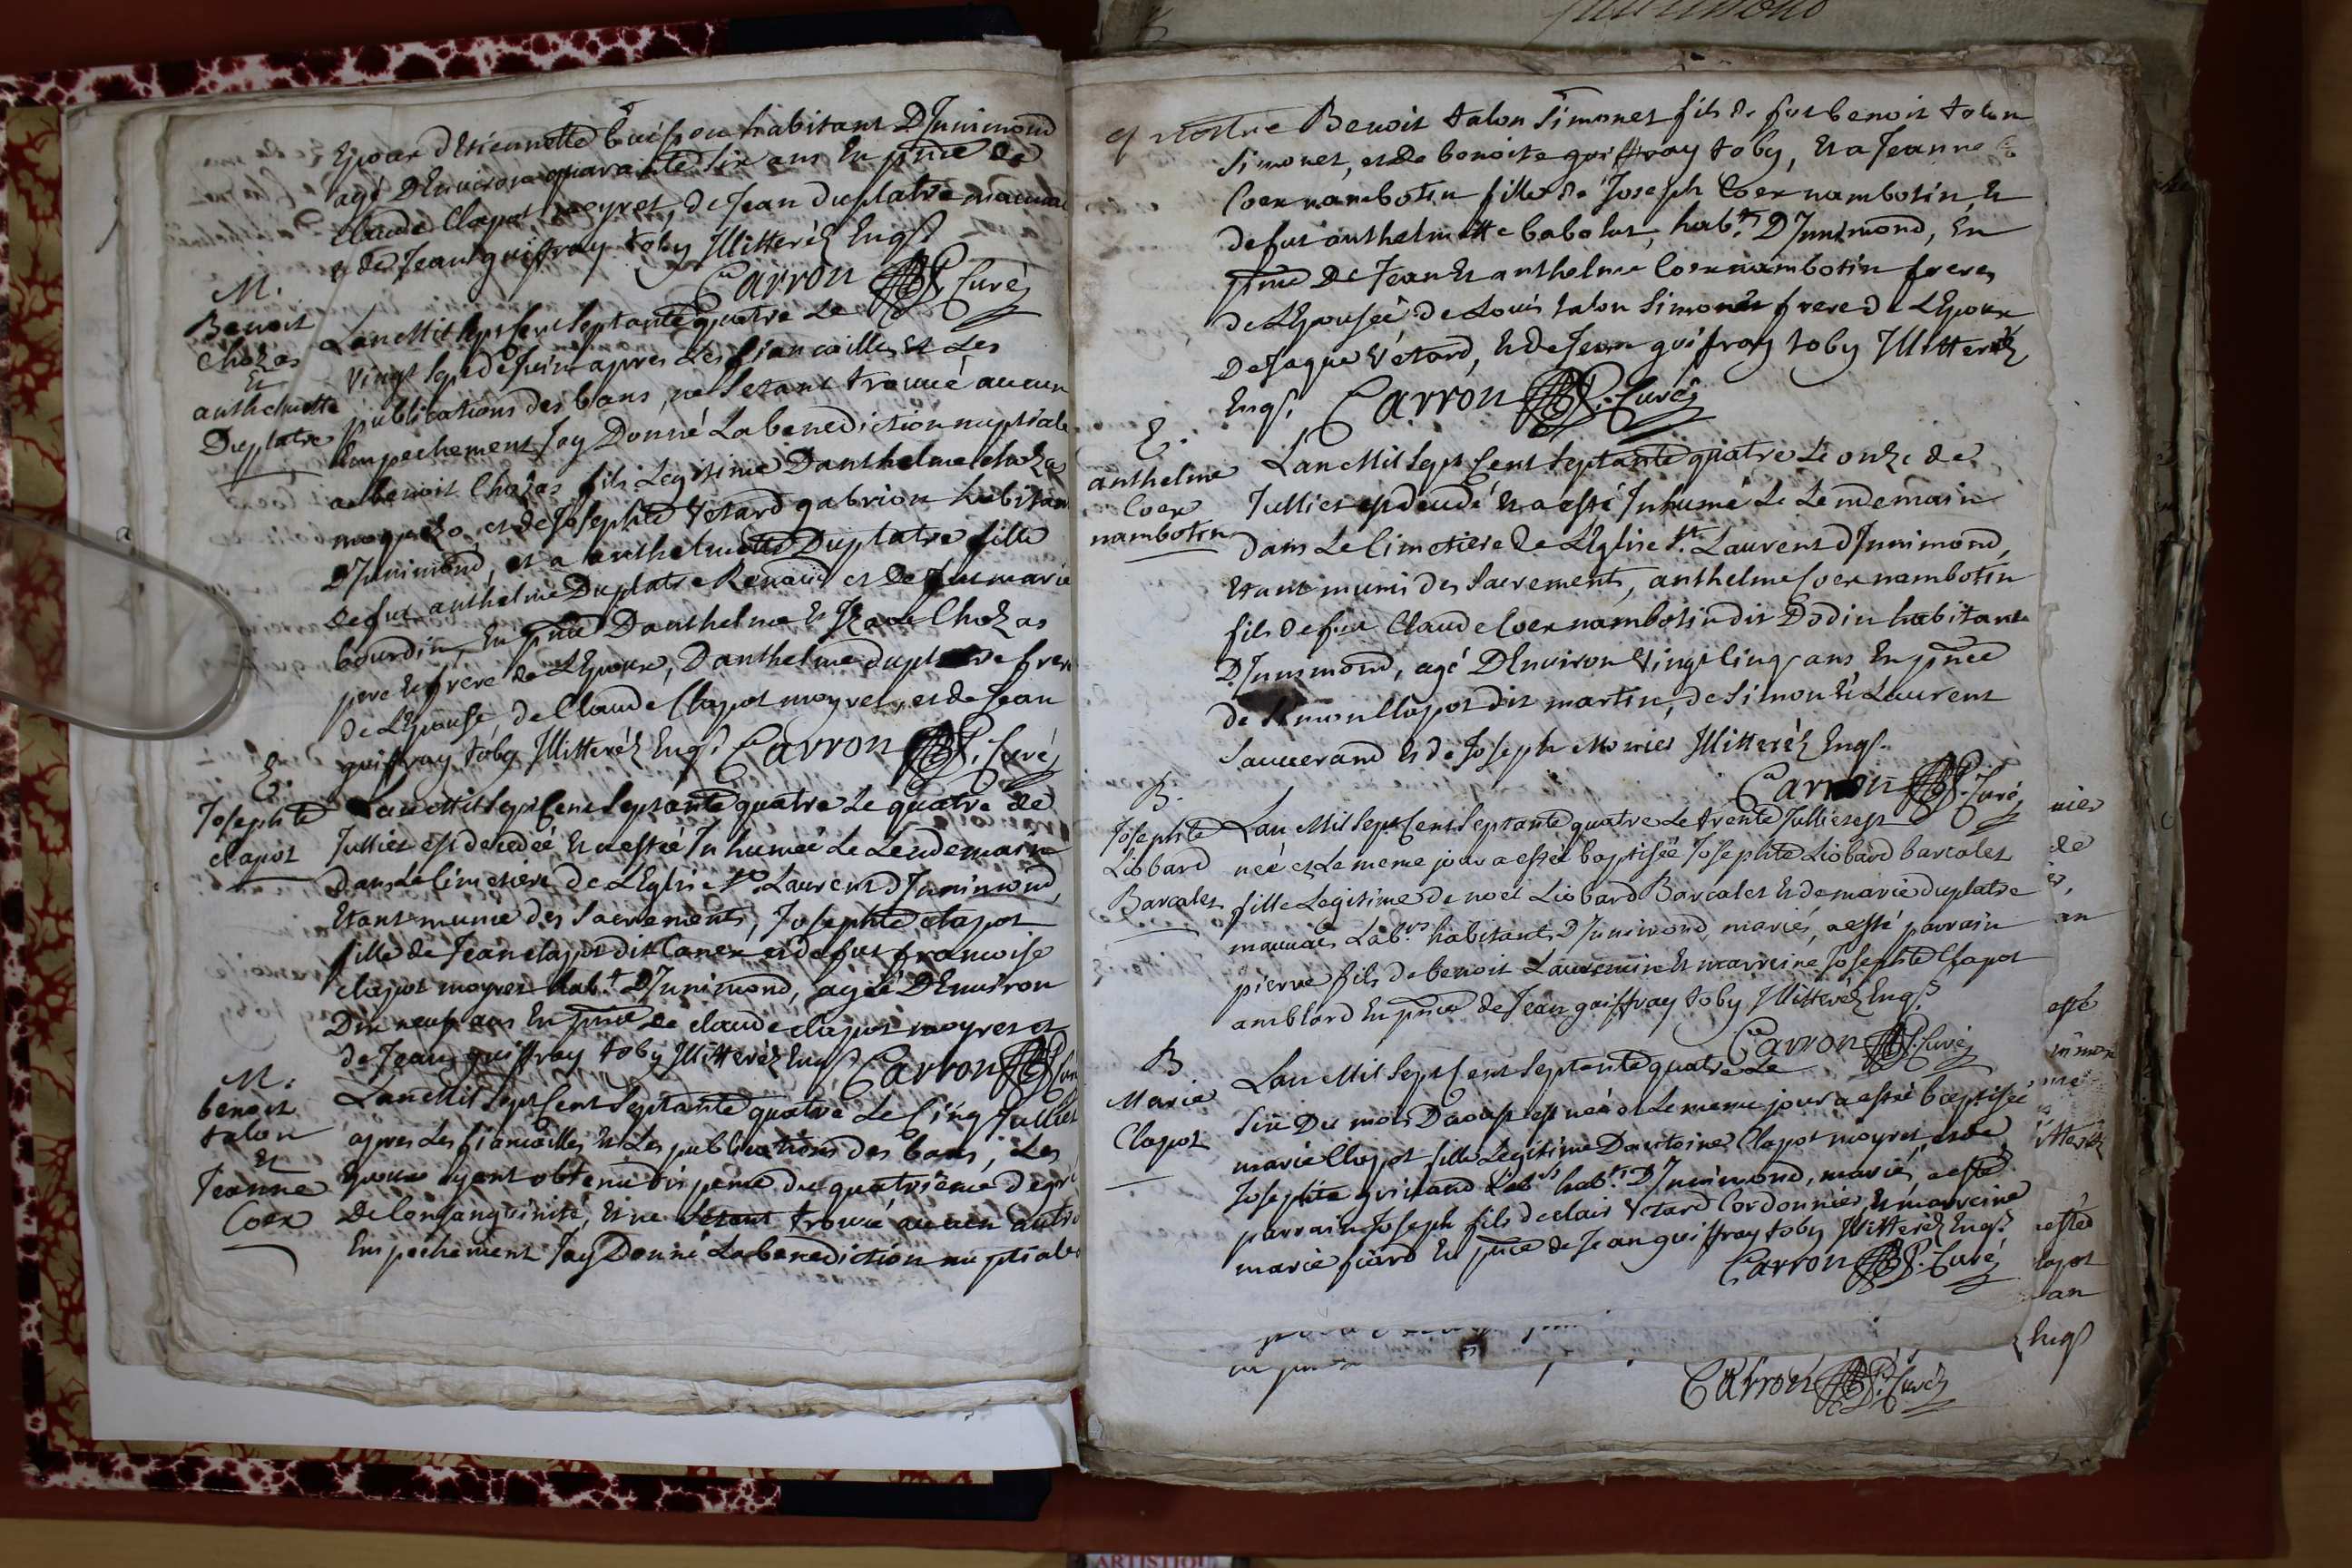 Epoux d'Etiennette buisson habitant D'Jnnimond
agé D'Environ quarante six ans En pnce de
claude Clapot moyret, de Jean duplatre mauvais
& de Jean guiffray toby Illitteréz Enqs
Carron P. Curé
M.
Benoit
Chozas
Et
anthelmette
Duplatre
Lan Mil Sept Cent Septante quatre Le
vingt Sept de Juin apres Les fiancailles Et Les
publications des bans, ne Setant trouvé aucun
Empechement Jay Donné La benediction nuptiale
a benoit Chozas fils Legitime D'anthelme chozas
et de Josephte Vetard gabrion habitan
D'Jnnimond, et a anthelmette Duplatre fille
de fut anthelme Duplatre Renaud et de fut marie
bourdin, En pnce D'anthelme & Chozas
pere & frere de L'Epoux, D'anthelme duplatre frere
de L'Epouse, de Claude Clapot moyret, et de Jean
guiffray toby Illitteréz Enqs Carron P. Curé
E.
Josephte
clapot
Lan Mil Sept Cent Septante quatre Le quatre de
Julliet est decedée Et a estée Inhumée Le Lendemain
dans Le Cimetiere de L'Eglise St. Laurent d'Jnnimond,
Etant munie des Sacrements, Josephte clapot
fille de Jean clapot dit Canex et de fut francoise
clapot moyret habt. D'Jnnimond, agée D'Environ
Dix neuf ans En pnce de claude clapot moyret et
de Jean guiffray toby Illitteréz Enqs Carron P. Curé
M.
benoit
talon
et
Jeanne
Coex
Lan Mil Sept Cent Septante quatre Le Cinq Julliet
apres Les fiancailles Et Les publications des bans, Les
Epoux ayant obtenu dispense du quatrieme degré
de Consanguinité, Et ne Setant trouvé aucun autre
Empechement Jay Donné La benediction nuptiale
Benoit talon Simonet fils de fut benoit talon
Simonet, et de benoite guiffray toby, Et a Jeanne
Coex nambotin fille de Joseph Coex nambotin, &
de fut anthelmette babolat, habts. D'Jnnimond, En
pnce De Jean & anthelme Coex nambotin freres
de L'Epousée de Louis talon Simonet frere de L'Epoux
De Jaque Vetard, & de Jean guifray toby Illitteréz
Enqs. Carron P. Curé
E.
anthelme
Coex
nambotin
Lan Mil Sept Cent Septante quatre Le onze de
Julliet est decedé Et a esté Inhumé Le Lendemain
dans Le Cimetiere de L'Eglise St. Laurent d'Jnnimond,
Etant muni des Sacrements, anthelme Coex nambotin
fils de feu Claude Coex nambotin dit Dodin habitant
D'Jnnimond, agé D'Environ Vingt Cinq ans En pnce
de Simon Clapot dit martin, de Simon & Laurent
Sauverand & de Joseph Monier Illitteréz Enqs.
Carron P. Curé
B.
Josephte
Liobard
Barcalet
Lan Mil Sept Cent Septante quatre Le trente Julliet est
neé et Le meme jour a estée baptisée Josephte Liobard barcalet
fille Legitime de noel Liobard Barcalet & de marie duplatre
mauvais Labrs. habitants D'Jnnimond, mariés, a esté parrain
pierre fils de benoit & marreine Josephte Clapot
amblard En pnce de Jean guiffray toby Illitteréz Enqs
Carron P. Curé
B
Marie
Clapot
Lan Mil Sept Cent Septante quatre Le
Six Du mois Daoust est neé et Le meme jour a estée baptisée
marie Clapot fille Legitime D'antoine Clapot moyret, et de
Josephte grinand Labrs habts. D'Jnnimond, mariés, a esté
parrain Joseph fils de clair Vetard Cordonnier, & marreine
marie fiard En pnce de Jean guiffray toby Illitteréz Enqs
Carron P. Curé
Carron P. Curé
nier
de
an
esté
estée
clapot
an
Enqs
ARTISTIQU